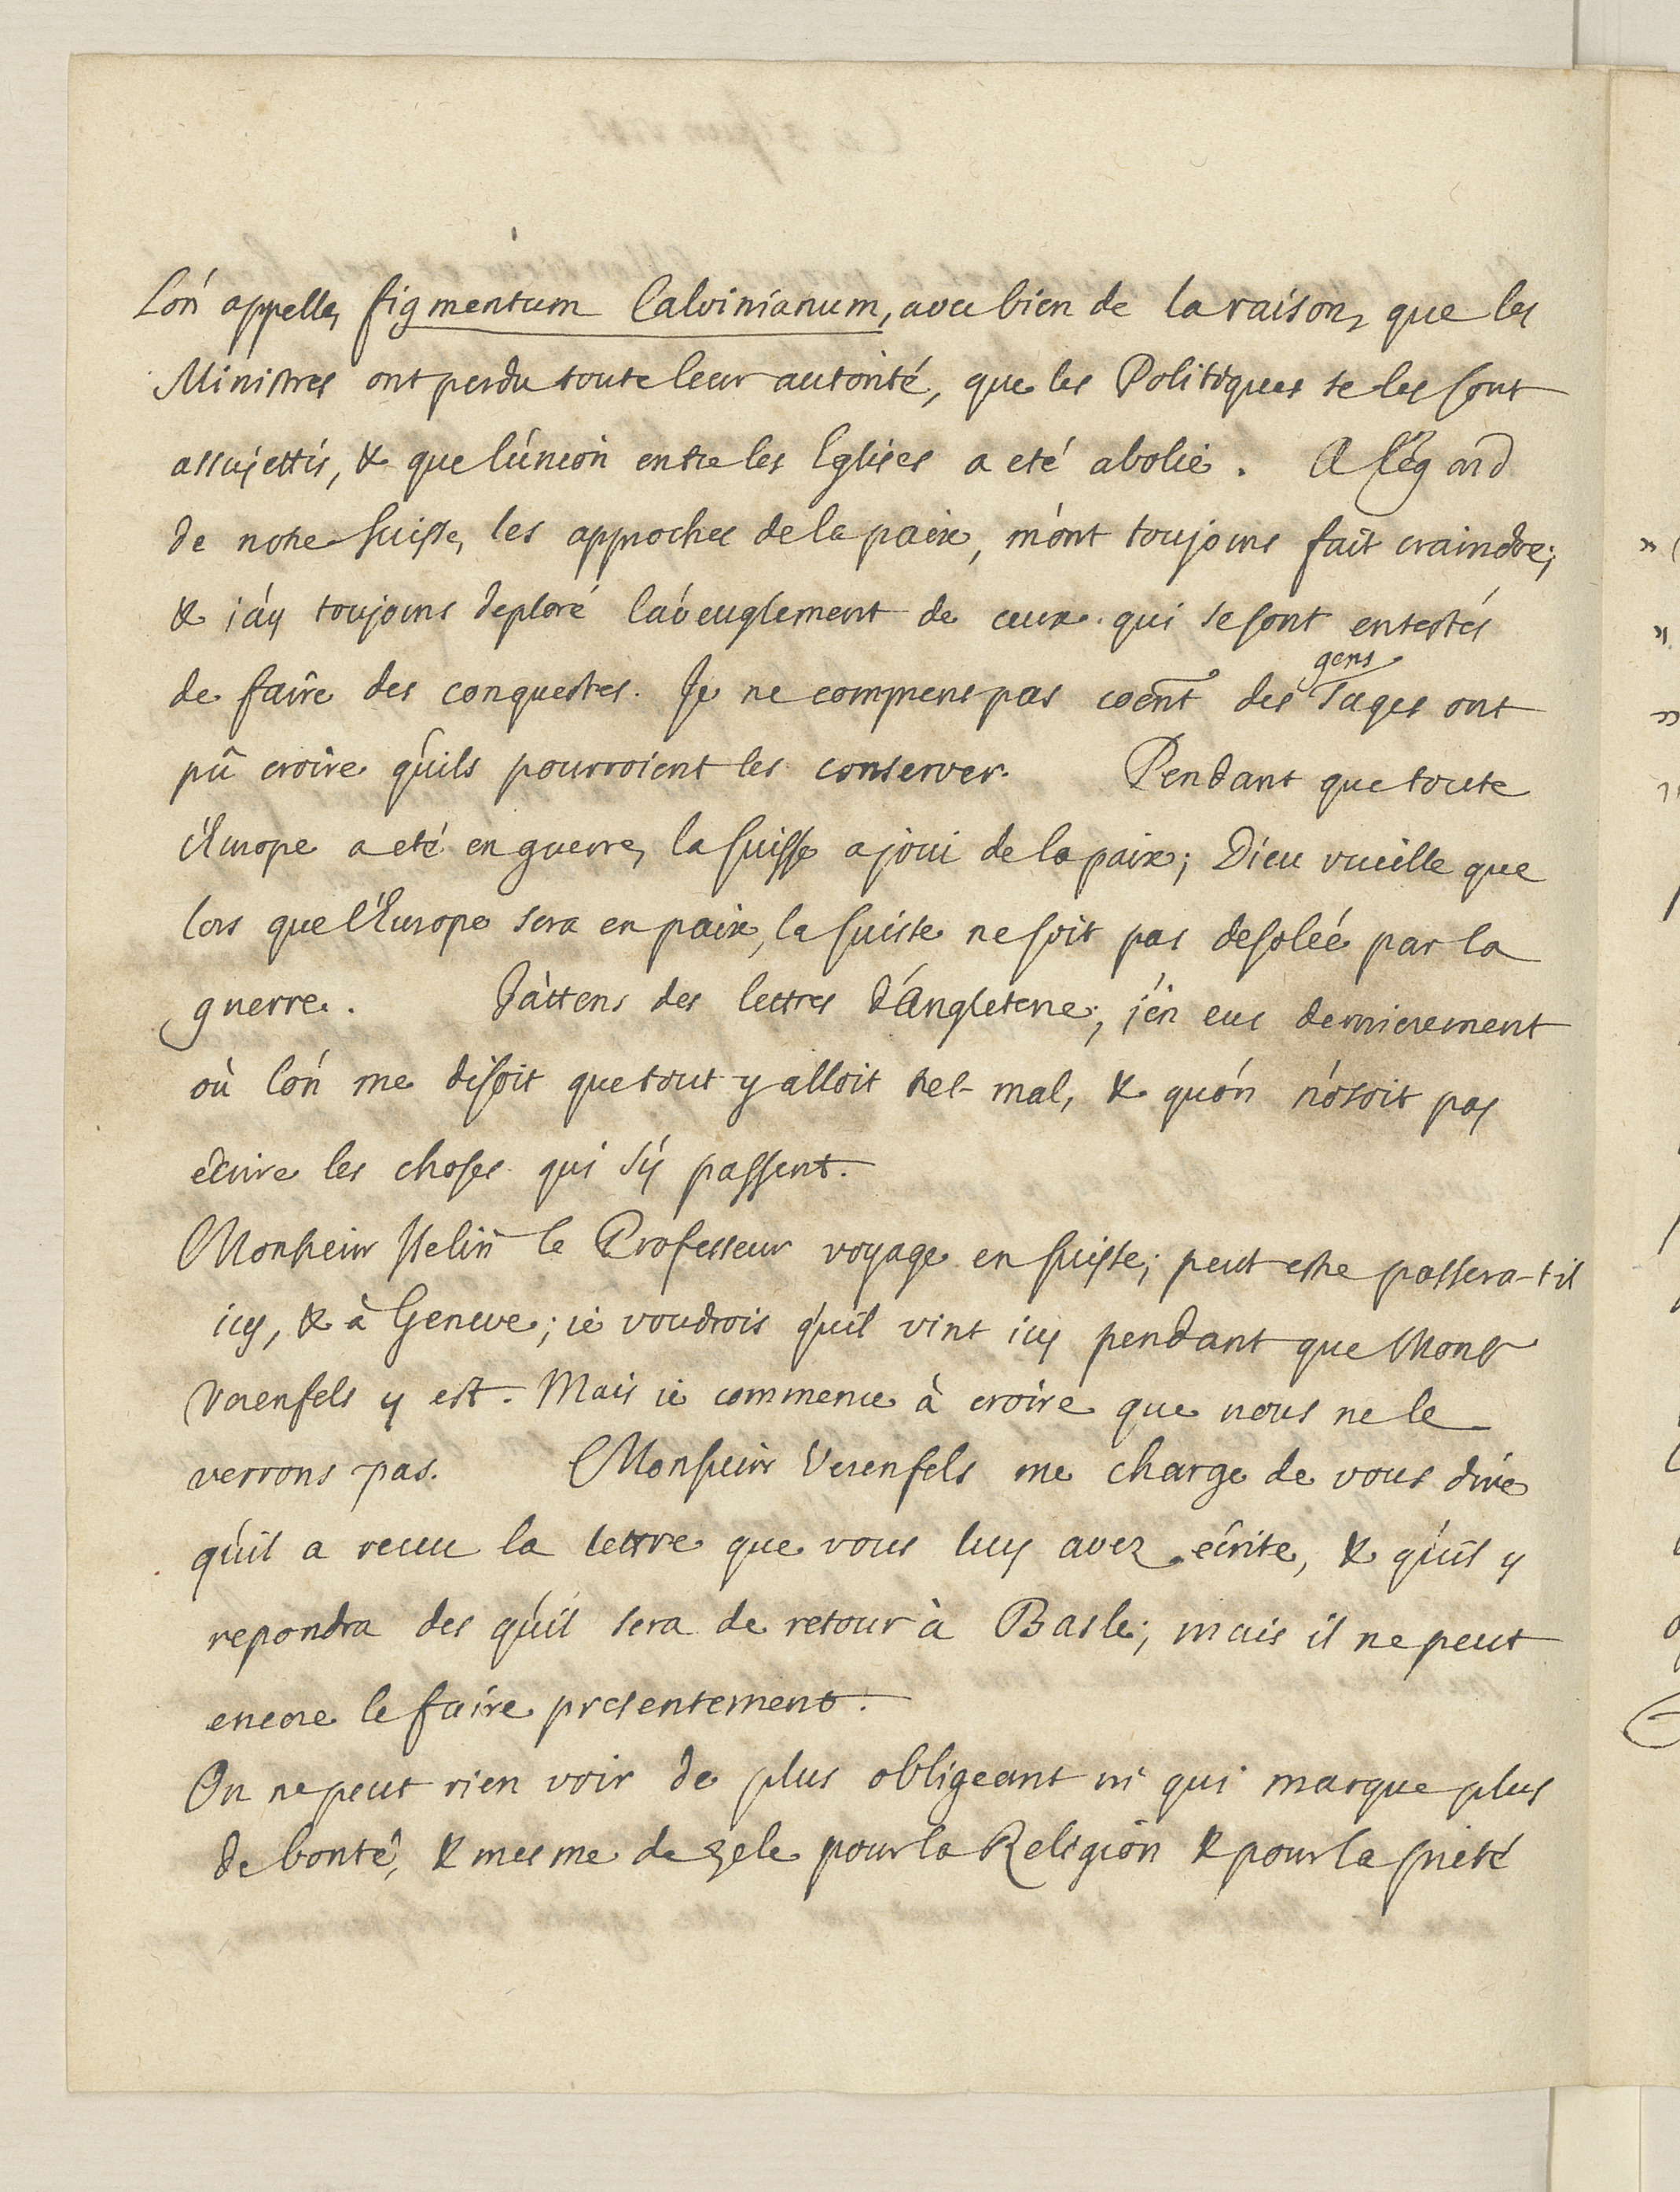 l'on appelle, figmentum Calvinianum, avec bien de la raison, que les
Ministres ont perdu toute leur autorité, que les Politiques se les sont
assujettis, & que l'union entre les Eglises a eté abolie. A l'égard
de notre Suisse, les approches de la paix, m'ont toujours fait craindre;
& j'ay toujours deploré l'aveuglement de ceux qui se sont entestés
de faire des conquestes. Je ne comprens pas coent des gens sages ont
pû croire qu'ils pourroient les conserver. Pendant que toute
l'Europe a eté en guerre, la Suisse a joui de la paix; Dieu vueille que
lors que l'Europe sera en paix, la Suisse ne soit pas desolée par la
guerre. J'attens des lettres d'Angleterre; j'en eus dernierement
où l'on me disoit que tout y alloit tres-mal, & qu'on n'osoit pas
ecrire les choses qui s'y passent.
Monsieur Iselin le Professeur voyage en Suisse; peut estre passera-t-il
icy, & à Geneve; ie voudrois qu'il vint icy pendant que Monsr
Verenfels y est. Mais ie commence à croire que nous ne le
verrons pas. Monsieur Verenfels me charge de vous dire
qu'il a receu la lettre que vous luy avez écrite, & qu'il y
repondra des qu'il sera de retour à Basle; mais il ne peut
encore le faire presentement.
On ne peut rien voir de plus obligeant ni qui marque plus
de bonté, & mesme de zele pour la Religion & pour la pieté